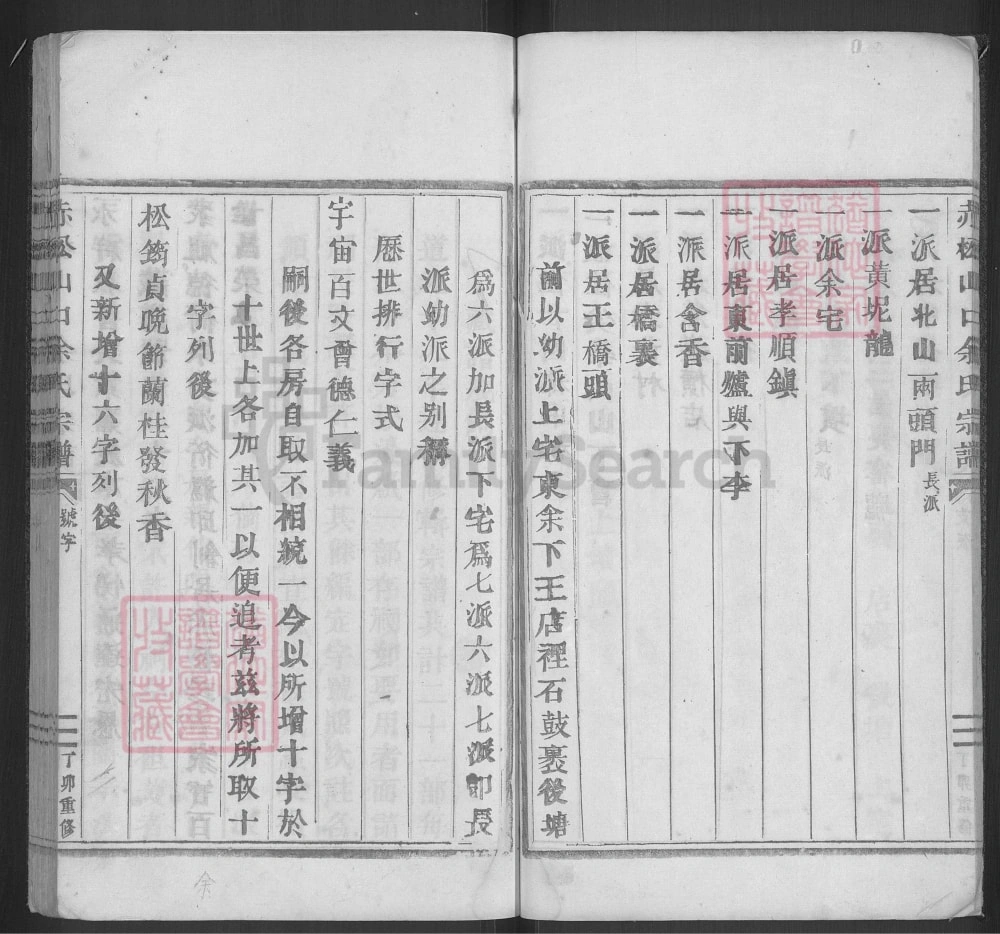 赤松山口余氏宗譜
一派居北山兩頭門 長派
一派黃坭龍
一派余宅
一派居孝順鎮
一派居東前爐與下李
一派居含香
一派居橋裏
一派居王橋頭
前以幼派上宅東余下王店裡石鼓裏後塘
爲六派加長派下宅爲七派六派七派即長
派幼派之別稱
歷世排行字式
宇宙百文會德仁義
嗣後各房自取不相統一今以所增十字於
十世上各加其一以便追考茲將所取十
字列後
松筠貞晚節蘭桂發秋香
又新增十六字列後
赤松山口余氏宗譜
號字
二
丁卯重修
FamilySearch
余